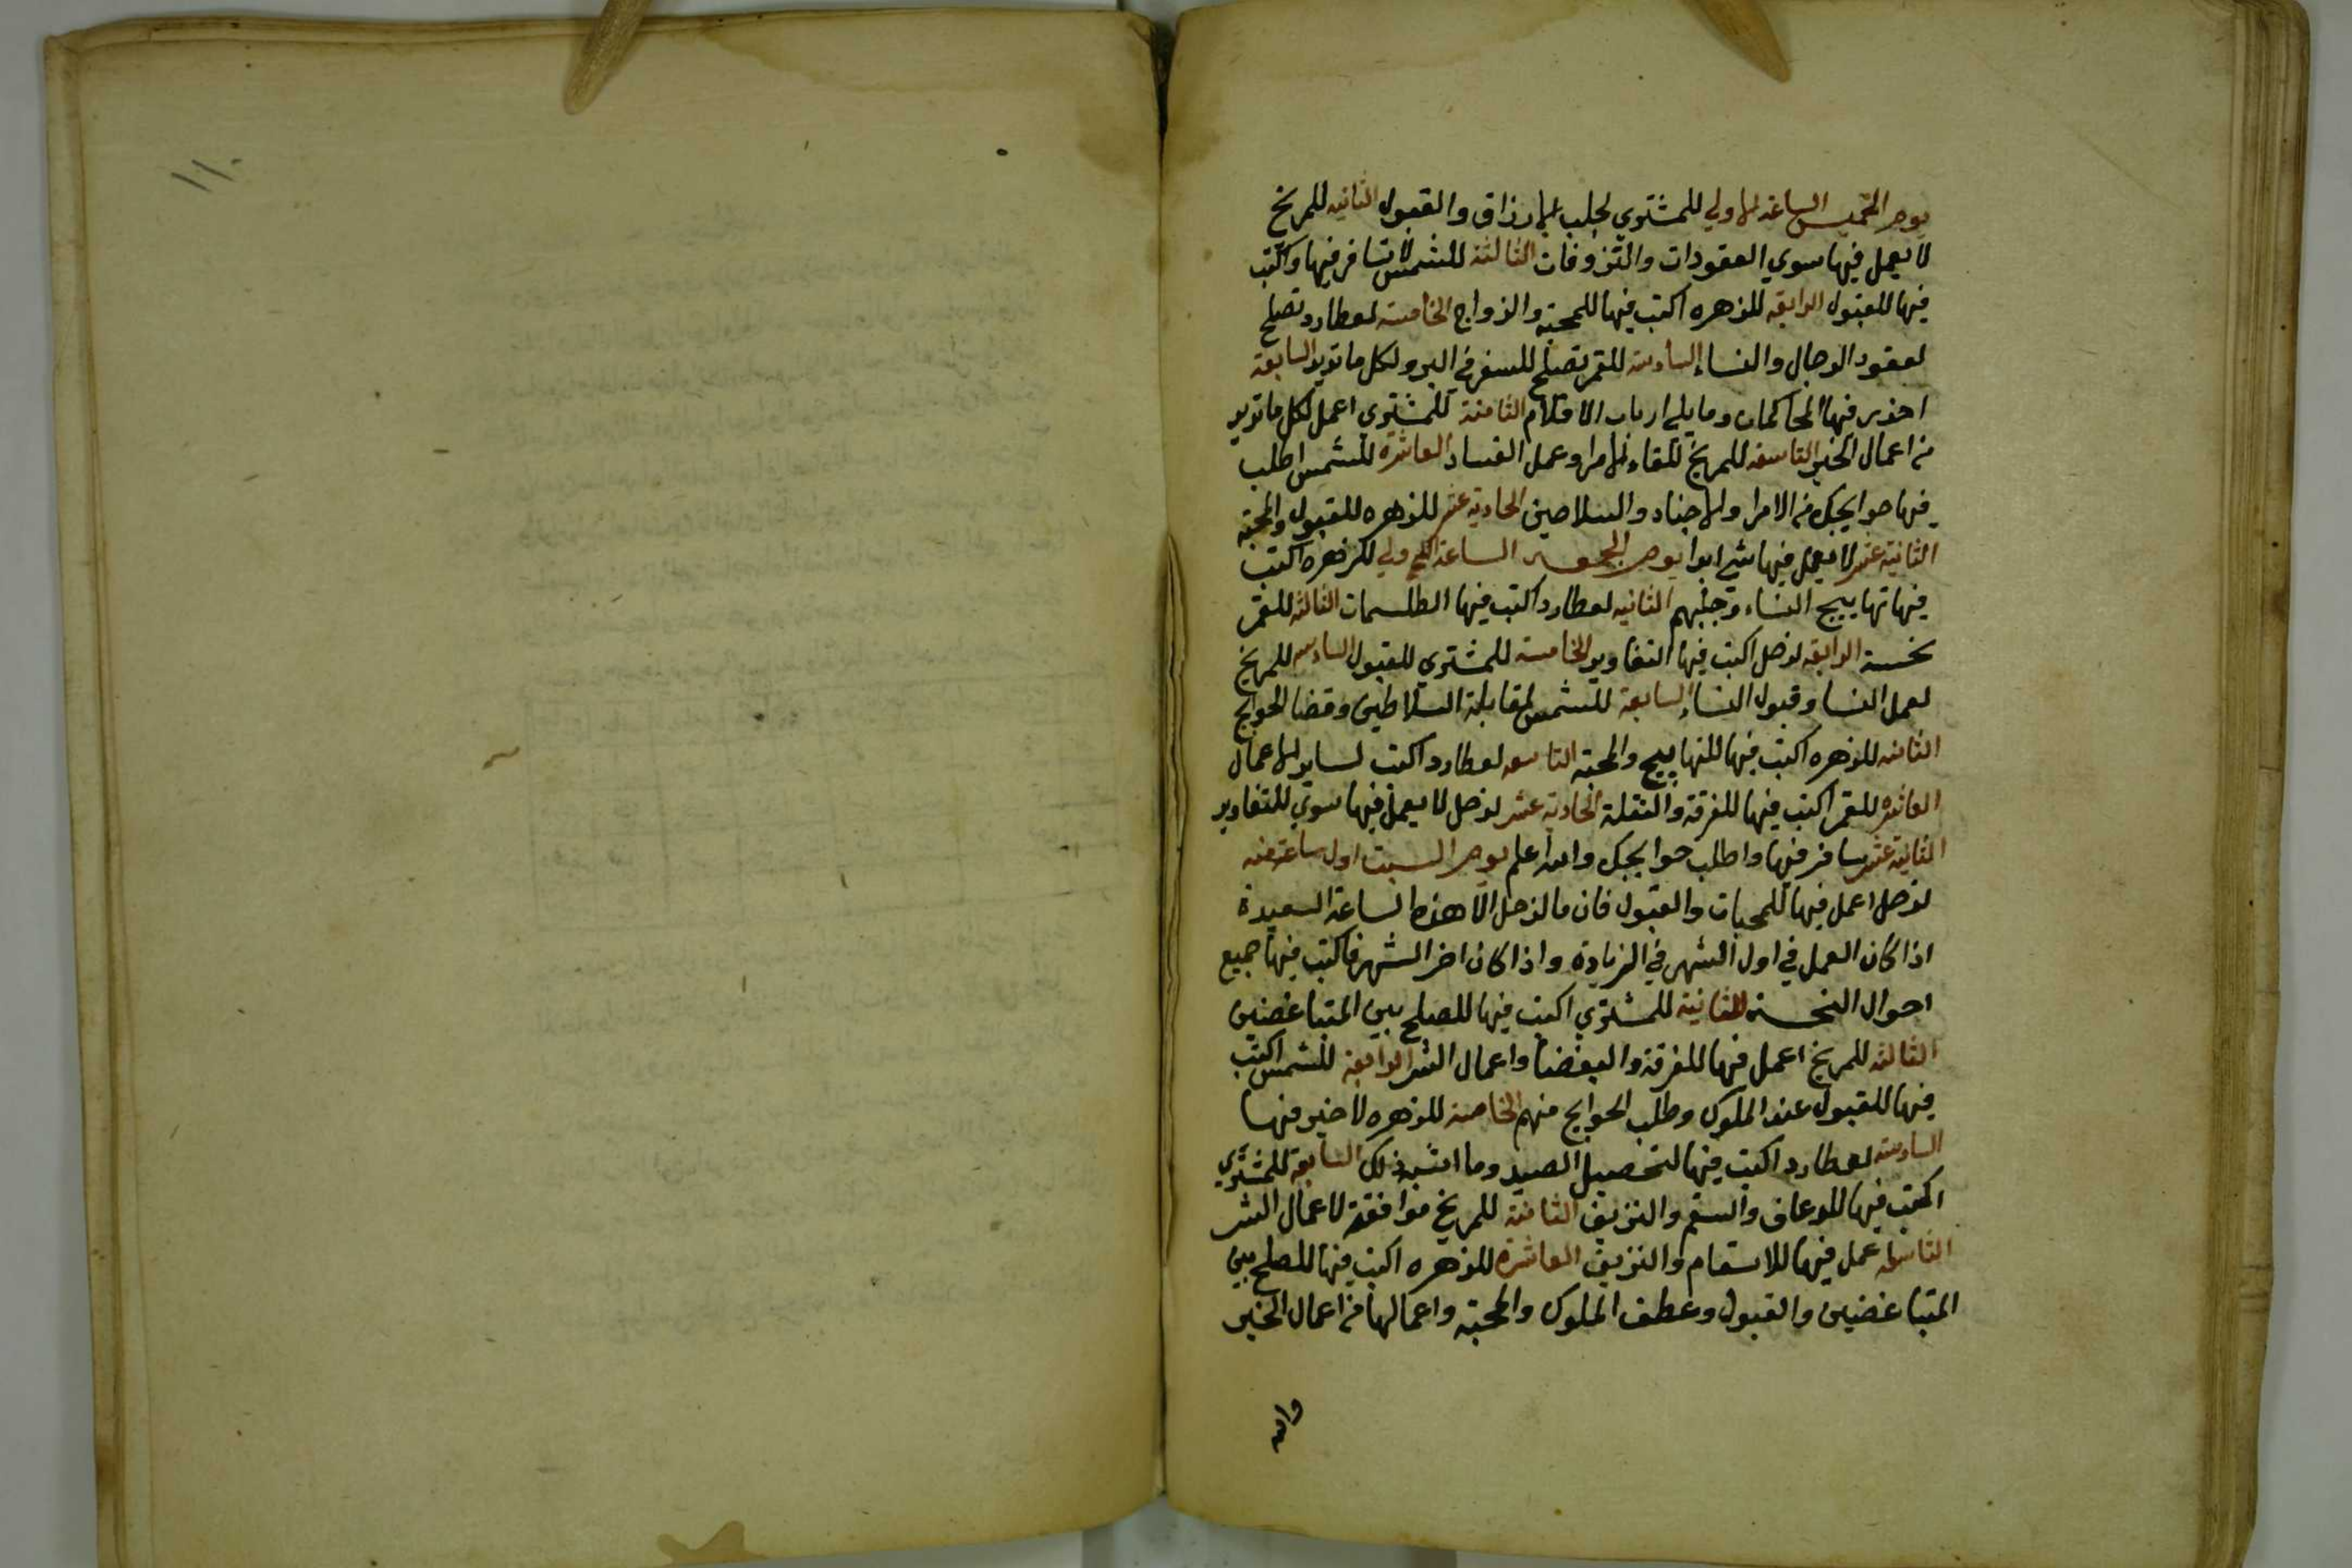 يوم الخميس الساعة الاولي للمشتري لجلب الارزاق والقبول الثانيه للمريخ
لا يعمل فيها سوي العقودات والنزوفات الثالثة للشمس لا تسافر فيها واكتب
فيها للقبول الرابعه للزهره اكتب فيها للمحبه والزواج الخامسة لعطارد تصلح
لعقود الرجال والنساء السادسة للقمر تصلح للسفر في البر ولكل ما تريد السابعة
احذر فيها المحاكمات وما يلي ارباب الاقلام الثامنة للمشتري اعمل لكل ما تريد
من اعمال الخير التاسعه للمريخ للقاء الامرا وعمل الفساد العاشرة للشمس اطلب
فيها حوايجك من الامرا والاجناد والسلاصين الحادية عشر للزهره للقبول والمحبه
الثانية عشر لا يعمل فيها شي ابدا يوم الجمعه الساعة الاولي للزهره اكتب
فيها تهاييج النساء وجلبهم الثانيه لعطارد اكتب فيها الطلسمات الثالثه للقمر
نحسة الرابعه لزحل اكتب فيها التغاوير الخامسة للمشتري للقبول السادسه للمريخ
لعمل النسا وقبول النساء السابعة للشمس لمقابلة السلاطين وقضا الحوايج
الثامنه للزهره اكتب فيها للتهاييج والمحبه التاسعه لعطارد اكتب لساير الاعمال
العاشره للقمر اكتب فيها للفرقة والنقلة الحادية عشر لزحل لا يعمل فيها سوي للتغاوير
الثانية عشر سافر فيها واطلب حوايجك والله اعلم يوم السبت اول ساعة منه
لزحل اعمل فيها للمحبات والقبول فان ما لزحل الا هذه الساعة السعيدة
اذا كان العمل في اول الشهر في الزيادة واذا كان اخر الشهر فاكتب فيها جميع
احوال النحسة الثانية للمشتري اكتب فيها للصلح بين المتباغضين
الثالثه للمريخ اعمل فيها للفرقة والبغضا واعمال الشر الرابعة للشمس اكتب
فيها للقبول عند الملوك وطلب الحوايج منهم الخامسة للزهره لا خير فيها
السادسه لعطارد اكتب فيها لتحصيل الصيد وما اشبه ذلك السابعة للمشتري
اكتب فيها للرعاف والسقم والنزيف الثامنة للمريخ موافقة لاعمال الشر
التاسعه اعمل فيها للاسقام والنزيف العاشرة للزهره اكتب فيها للصلح بين
المتباغضين والقبول وعطف الملوك والمحبه واعمالها من اعمال الخير
والله
١١٠